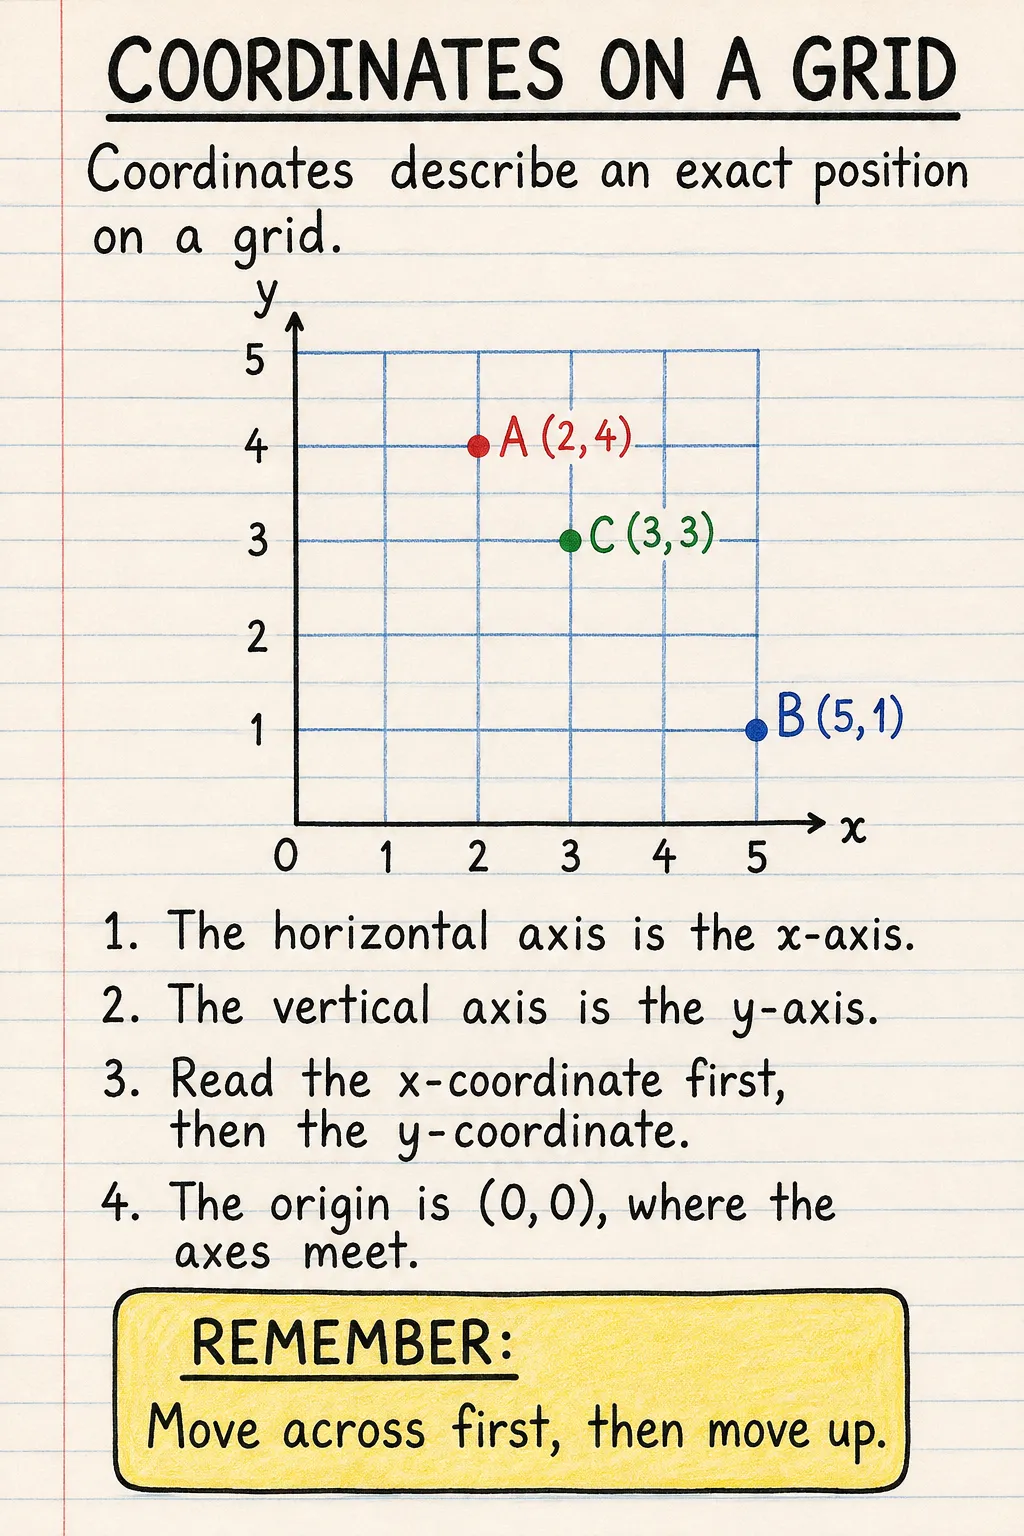 COORDINATES ON A GRID
Coordinates describe an exact position
on a grid.
y
5
4
A (2, 4)
3
C (3, 3)
2
1
B (5, 1)
x
0 1 2 3 4 5
1. The horizontal axis is the x-axis.
2. The vertical axis is the y-axis.
3. Read the x-coordinate first,
then the y-coordinate.
4. The origin is (0, 0), where the
axes meet.
REMEMBER:
Move across first, then move up.